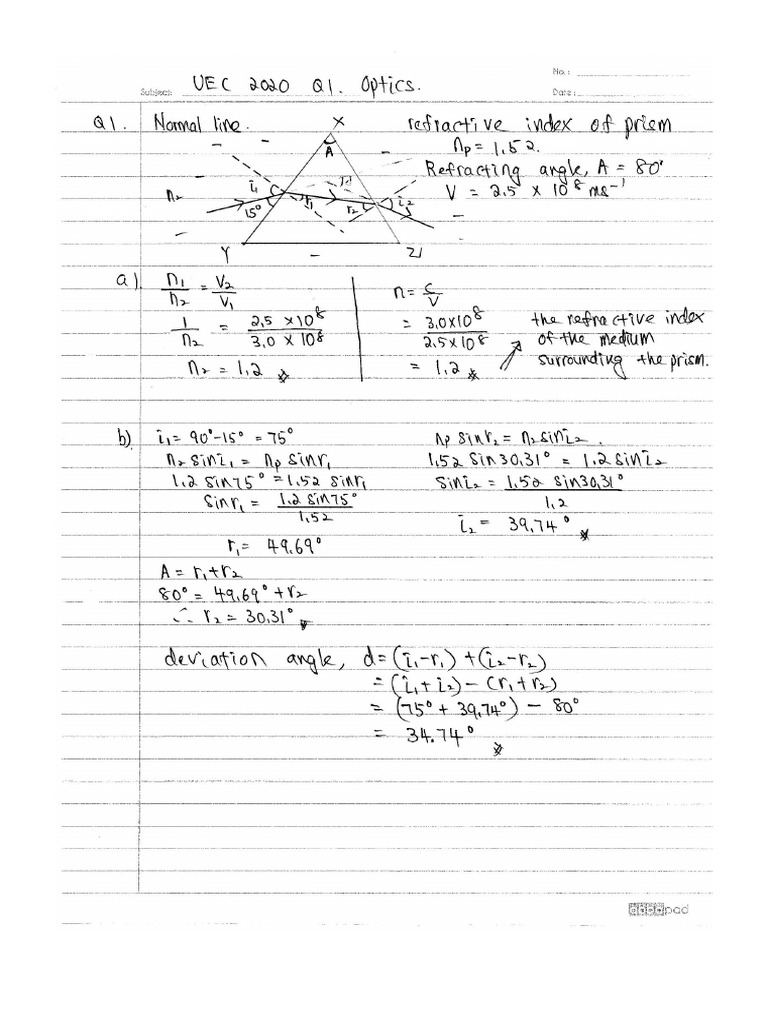 No.:
Subject: UEC 2020 Q1. Optics.
Date:
Q1. Normal line.
X
A
n₂
i₁
15°
r₁
d
r₂
i₂
Y
Z
refractive index of prism
np = 1.52.
Refracting angle, A = 80°
V = 2.5 × 10⁸ ms⁻¹
a).
n₁/n₂ = V₂/V₁
1/n₂ = 2.5 × 10⁸/3.0 × 10⁸
n₂ = 1.2
n = c/V
= 3.0×10⁸/2.5×10⁸
= 1.2
the refractive index
of the medium
surrounding the prism.
b)
i₁ = 90°-15° = 75°
n₂ sin i₁ = np sin r₁
1.2 sin 75° = 1.52 sin r₁
sin r₁ = 1.2 sin 75°/1.52
r₁ = 49.69°
A = r₁ + r₂
80° = 49.69° + r₂
∴ r₂ = 30.31°
np sin r₂ = n₂ sin i₂.
1.52 sin 30.31° = 1.2 sin i₂
sin i₂ = 1.52 sin 30.31°/1.2
i₂ = 39.74°
deviation angle, d = (i₁-r₁) + (i₂-r₂)
= (i₁ + i₂) - (r₁ + r₂)
= (75° + 39.74°) - 80°
= 34.74°